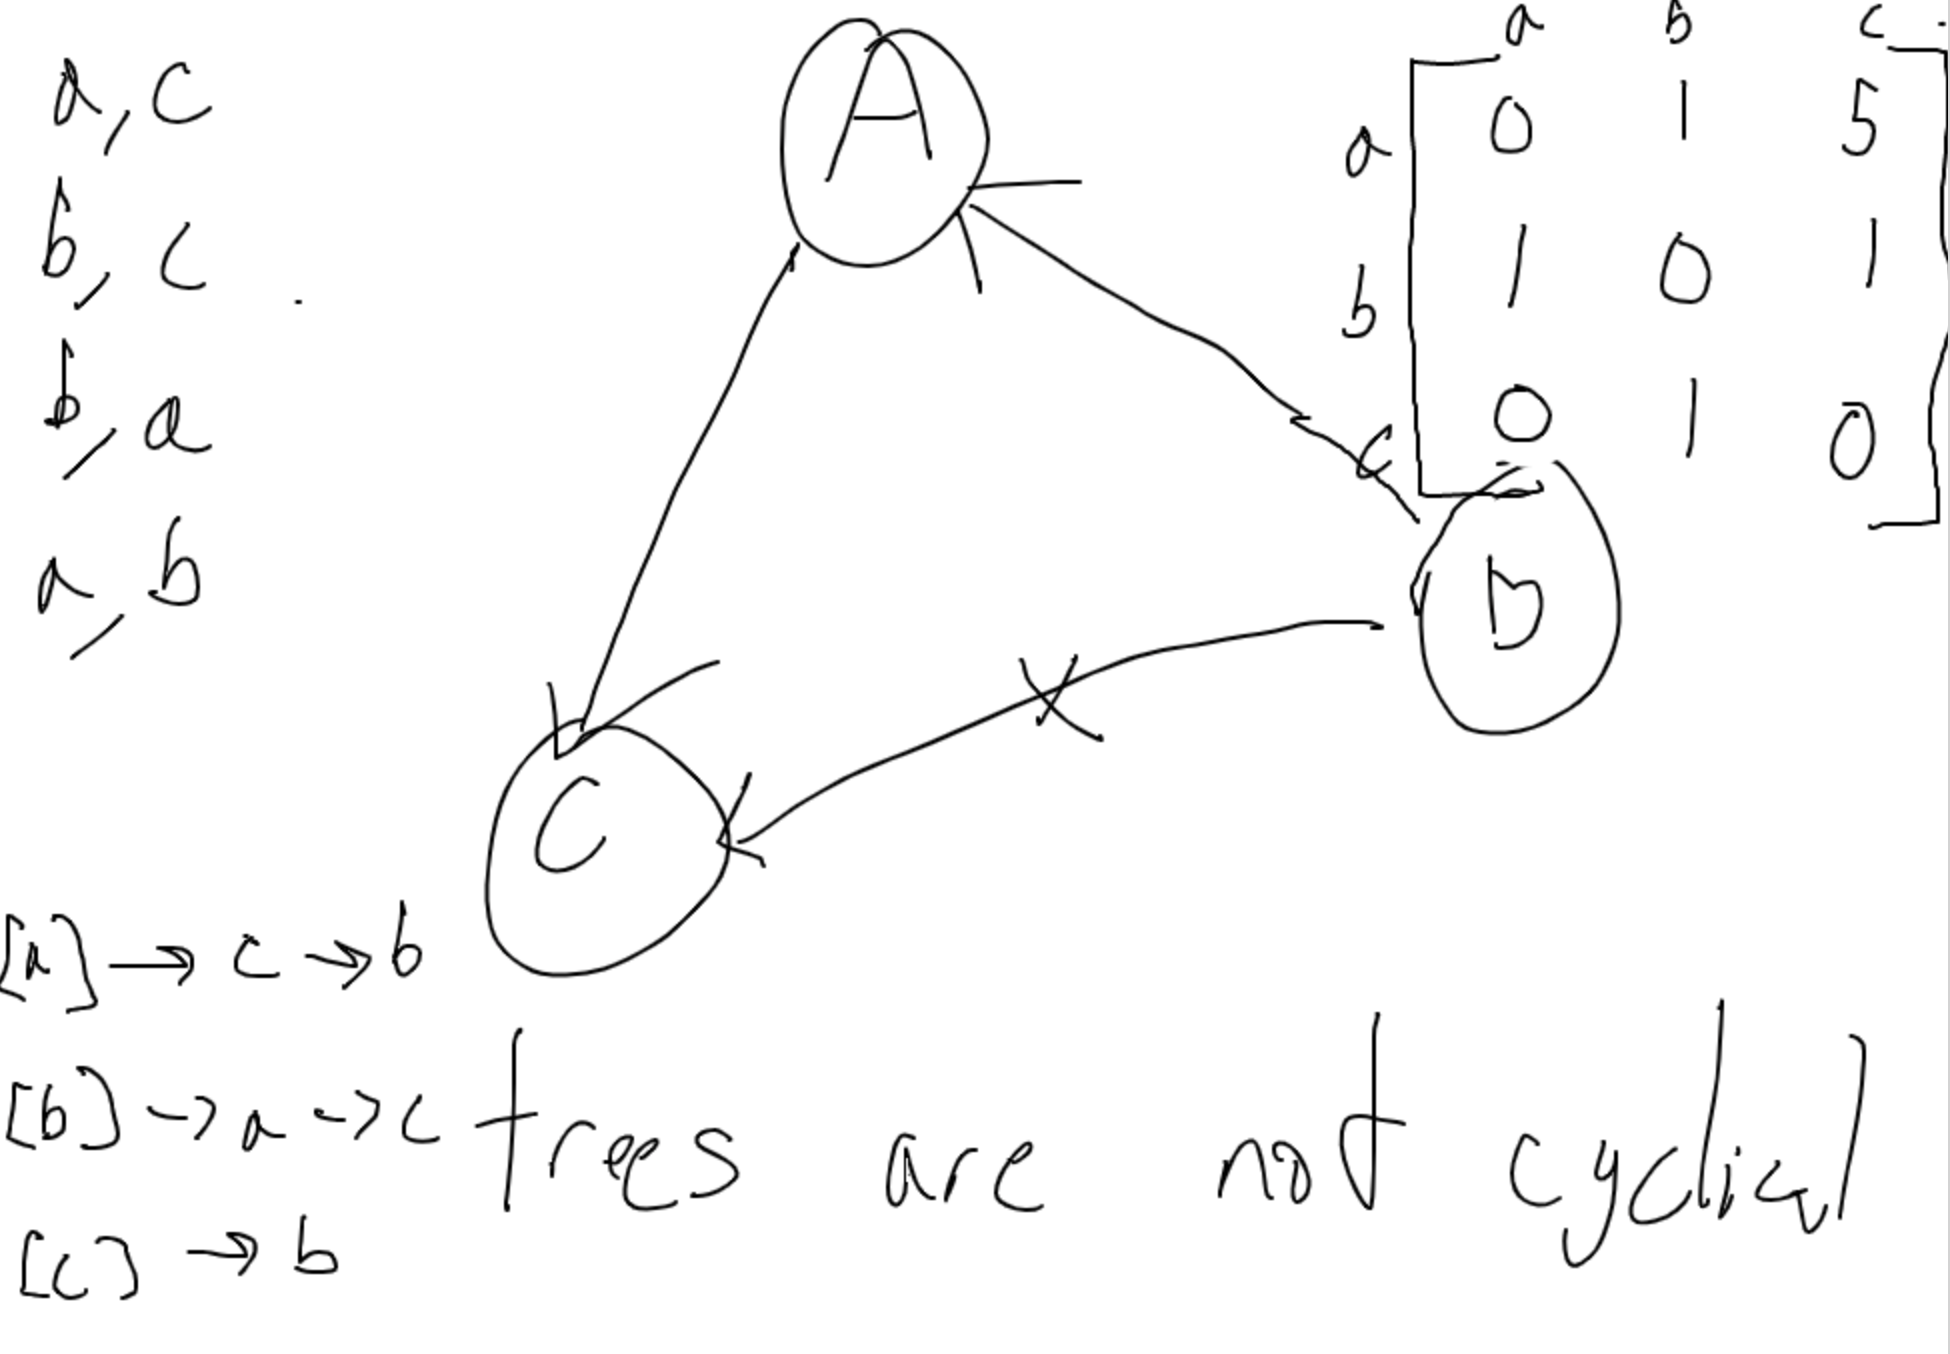 a, c
b, c
b, a
a, b
A
C
b
a b c
a 0 1 5
b 1 0 1
c 0 1 0
[a] → c → b
[b] → a → c
[c] → b
trees are not cyclical